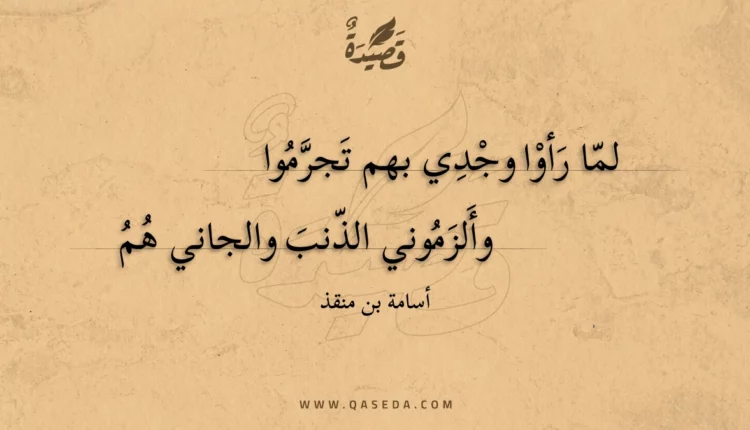 قَصِيْدَةٌ
لمّا رَأوْا وجْدِي بهم تَجرَّمُوا
وأَلزَمُوني الذّنبَ والجاني هُمُ
أسامة بن منقذ
WWW.QASEDA.COM